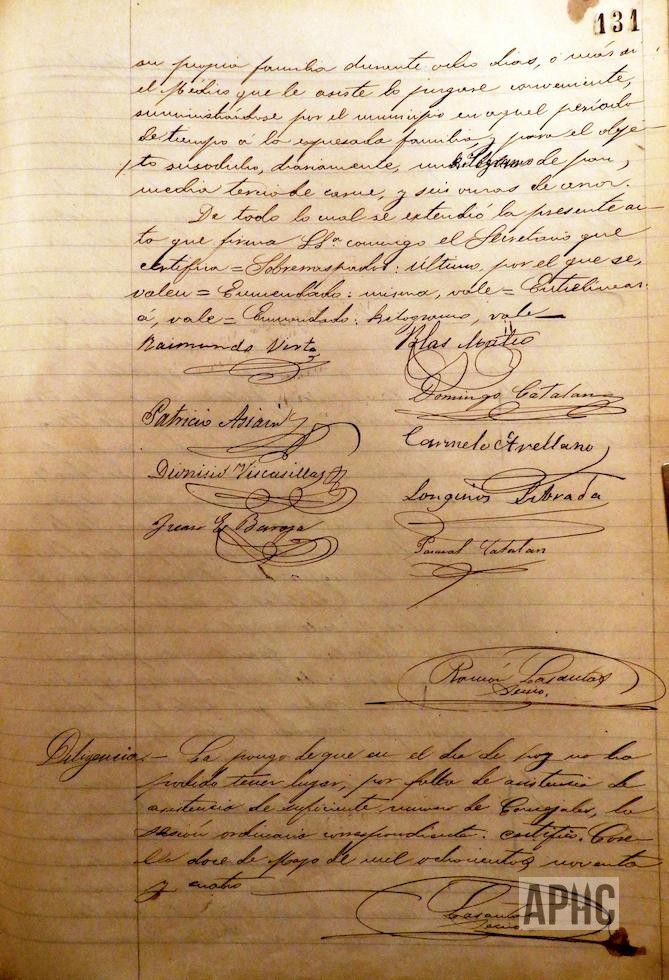 131
su propia familia durante ocho dias, ó más si
el Médico que le asiste lo juzgase conveniente,
suministrándose por el municipio en aquel período
de tiempo á la expresada familia, para el obje-
to susodicho, diariamente, un kilógramo de pan,
media tercia de carne, y seis onzas de arroz.
De todo lo cual se extendió la presente ac-
ta que firma SSª conmigo el Secretario que
certifica = Sobrerraspados: último, por el que se,
valen = Enmendado: misma, vale = Entrelinea:
á, vale = Enmendado: kilogramo, vale
Raimundo Virto
Blas Mateo
Domingo Catalan
Patricio Asiain
Carmelo Arellano
Dionisio Viscasillas
Longinos Librada
Juan E. Baroja
Pascual Catalan
Ramón Lasanta
Secrio.
Diligencia.- La pongo de que en el dia de hoy no ha
podido tener lugar, por falta de asistencia de
asistencia de suficiente número de Concejales, la
sesion ordinaria correspondiente: certifico. Core-
lla doce de Mayo de mil ochocientos noventa
y cuatro
Lasanta
Secrio.
APHC